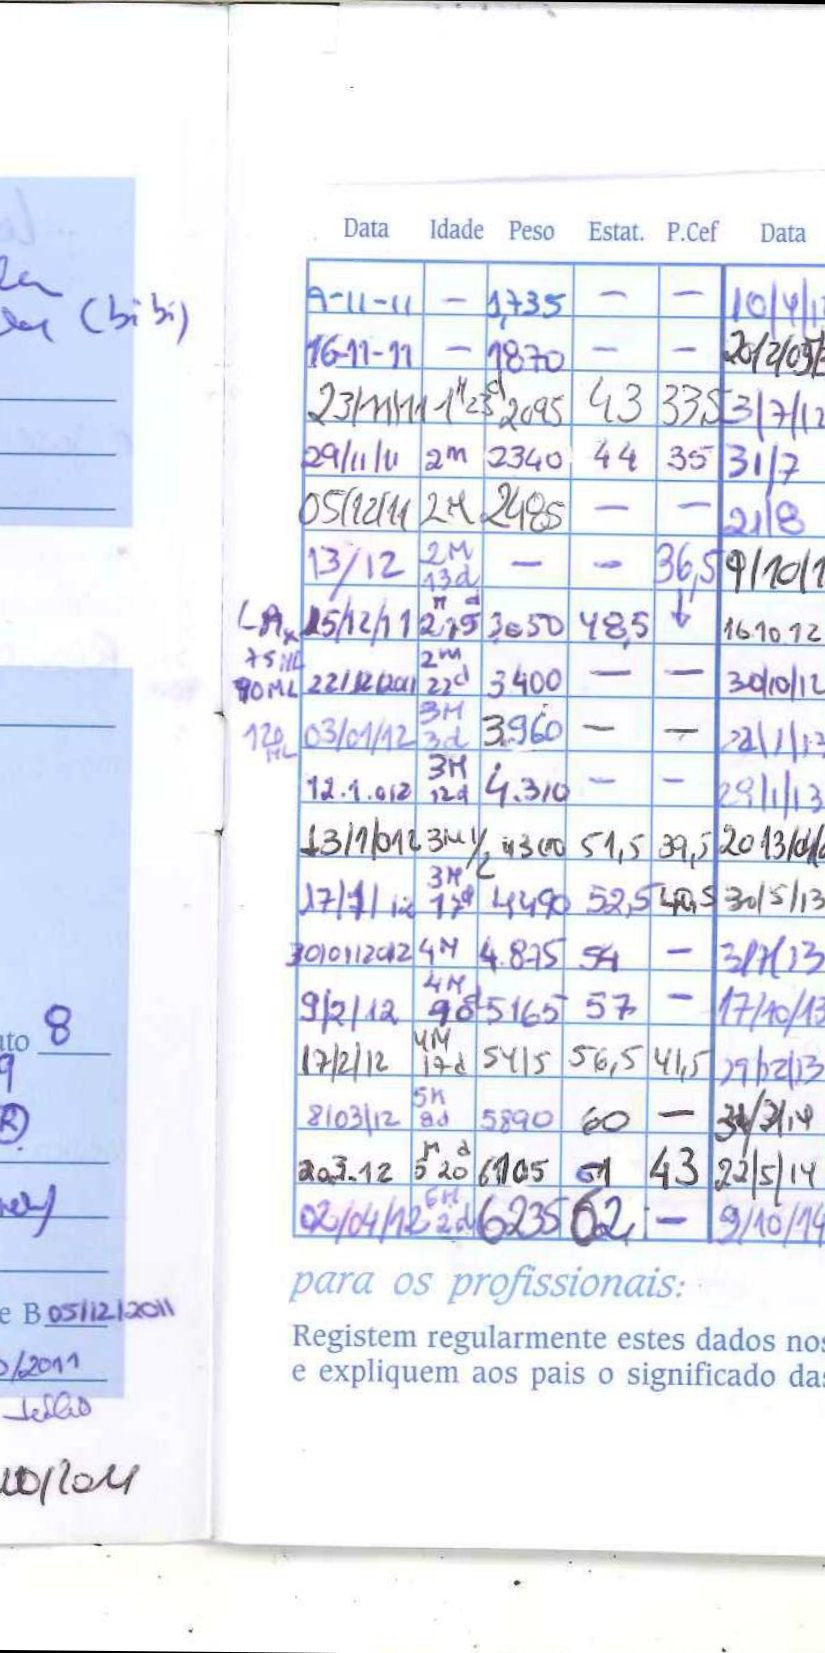 (bibi)
8
9
e B 05/12/2011
0/2011
Data Idade Peso Estat. P.Cef Data
9-11-11 — 1,735 — —
16-11-11 — 1870 — —
23/11/11 1M 23d 2095 43 33,5 3/7/12
29/11/11 2m 2340 44 35 31/7
05/12/11 2M 2485 — — 21/8
13/12 2M 13d — — 36,5 9/10/1
LA 15/12/11 3.050 48,5 ↓ 16.10.12
75ML
90ML 22/12/2011 2m 22d 3400 — — 30/10/12
120 ML 03/01/12 3M 3d 3.960 — — 22/1/13
12.1.012 3M 12d 4.310 — — 29/1/13
13/1/012 3M 1/2 4300 51,5 39,5
17/1/12 3M 17d 4490 52,5 40,5 30/5/13
30/01/2012 4M 4.875 54 —
9/2/12 4M 9d 5165 57 — 17/10/13
17/2/12 4M 17d 5415 56,5 41,5 29/12/13
8/03/12 5M 8d 5890 60 —
20.3.12 5M 20d 6105 61 43 22/5/14
02/04/12 6M 2d 6235 62 — 9/10/14
para os profissionais:
Registem regularmente estes dados nos
e expliquem aos pais o significado das